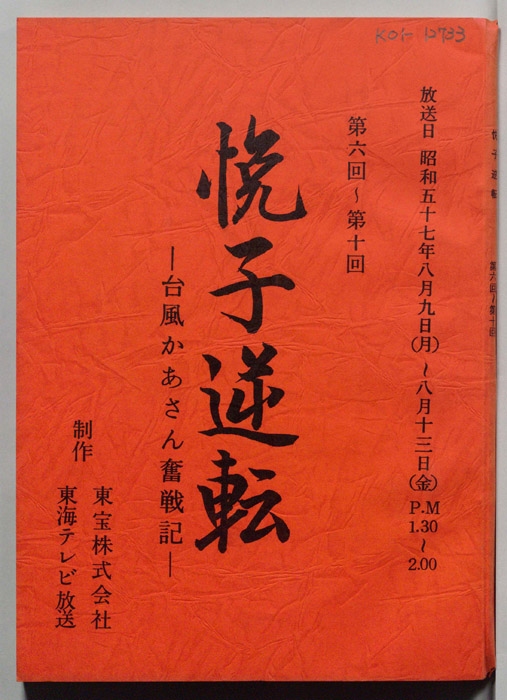 KO1- 12733
放送日 昭和五十七年八月九日(月)〜八月十三日(金)P.M 1.30〜2.00
第六回〜第十回
悦子逆転
―台風かあさん奮戦記―
制作 東宝株式会社
東海テレビ放送
悦子逆転 第六回〜第十回